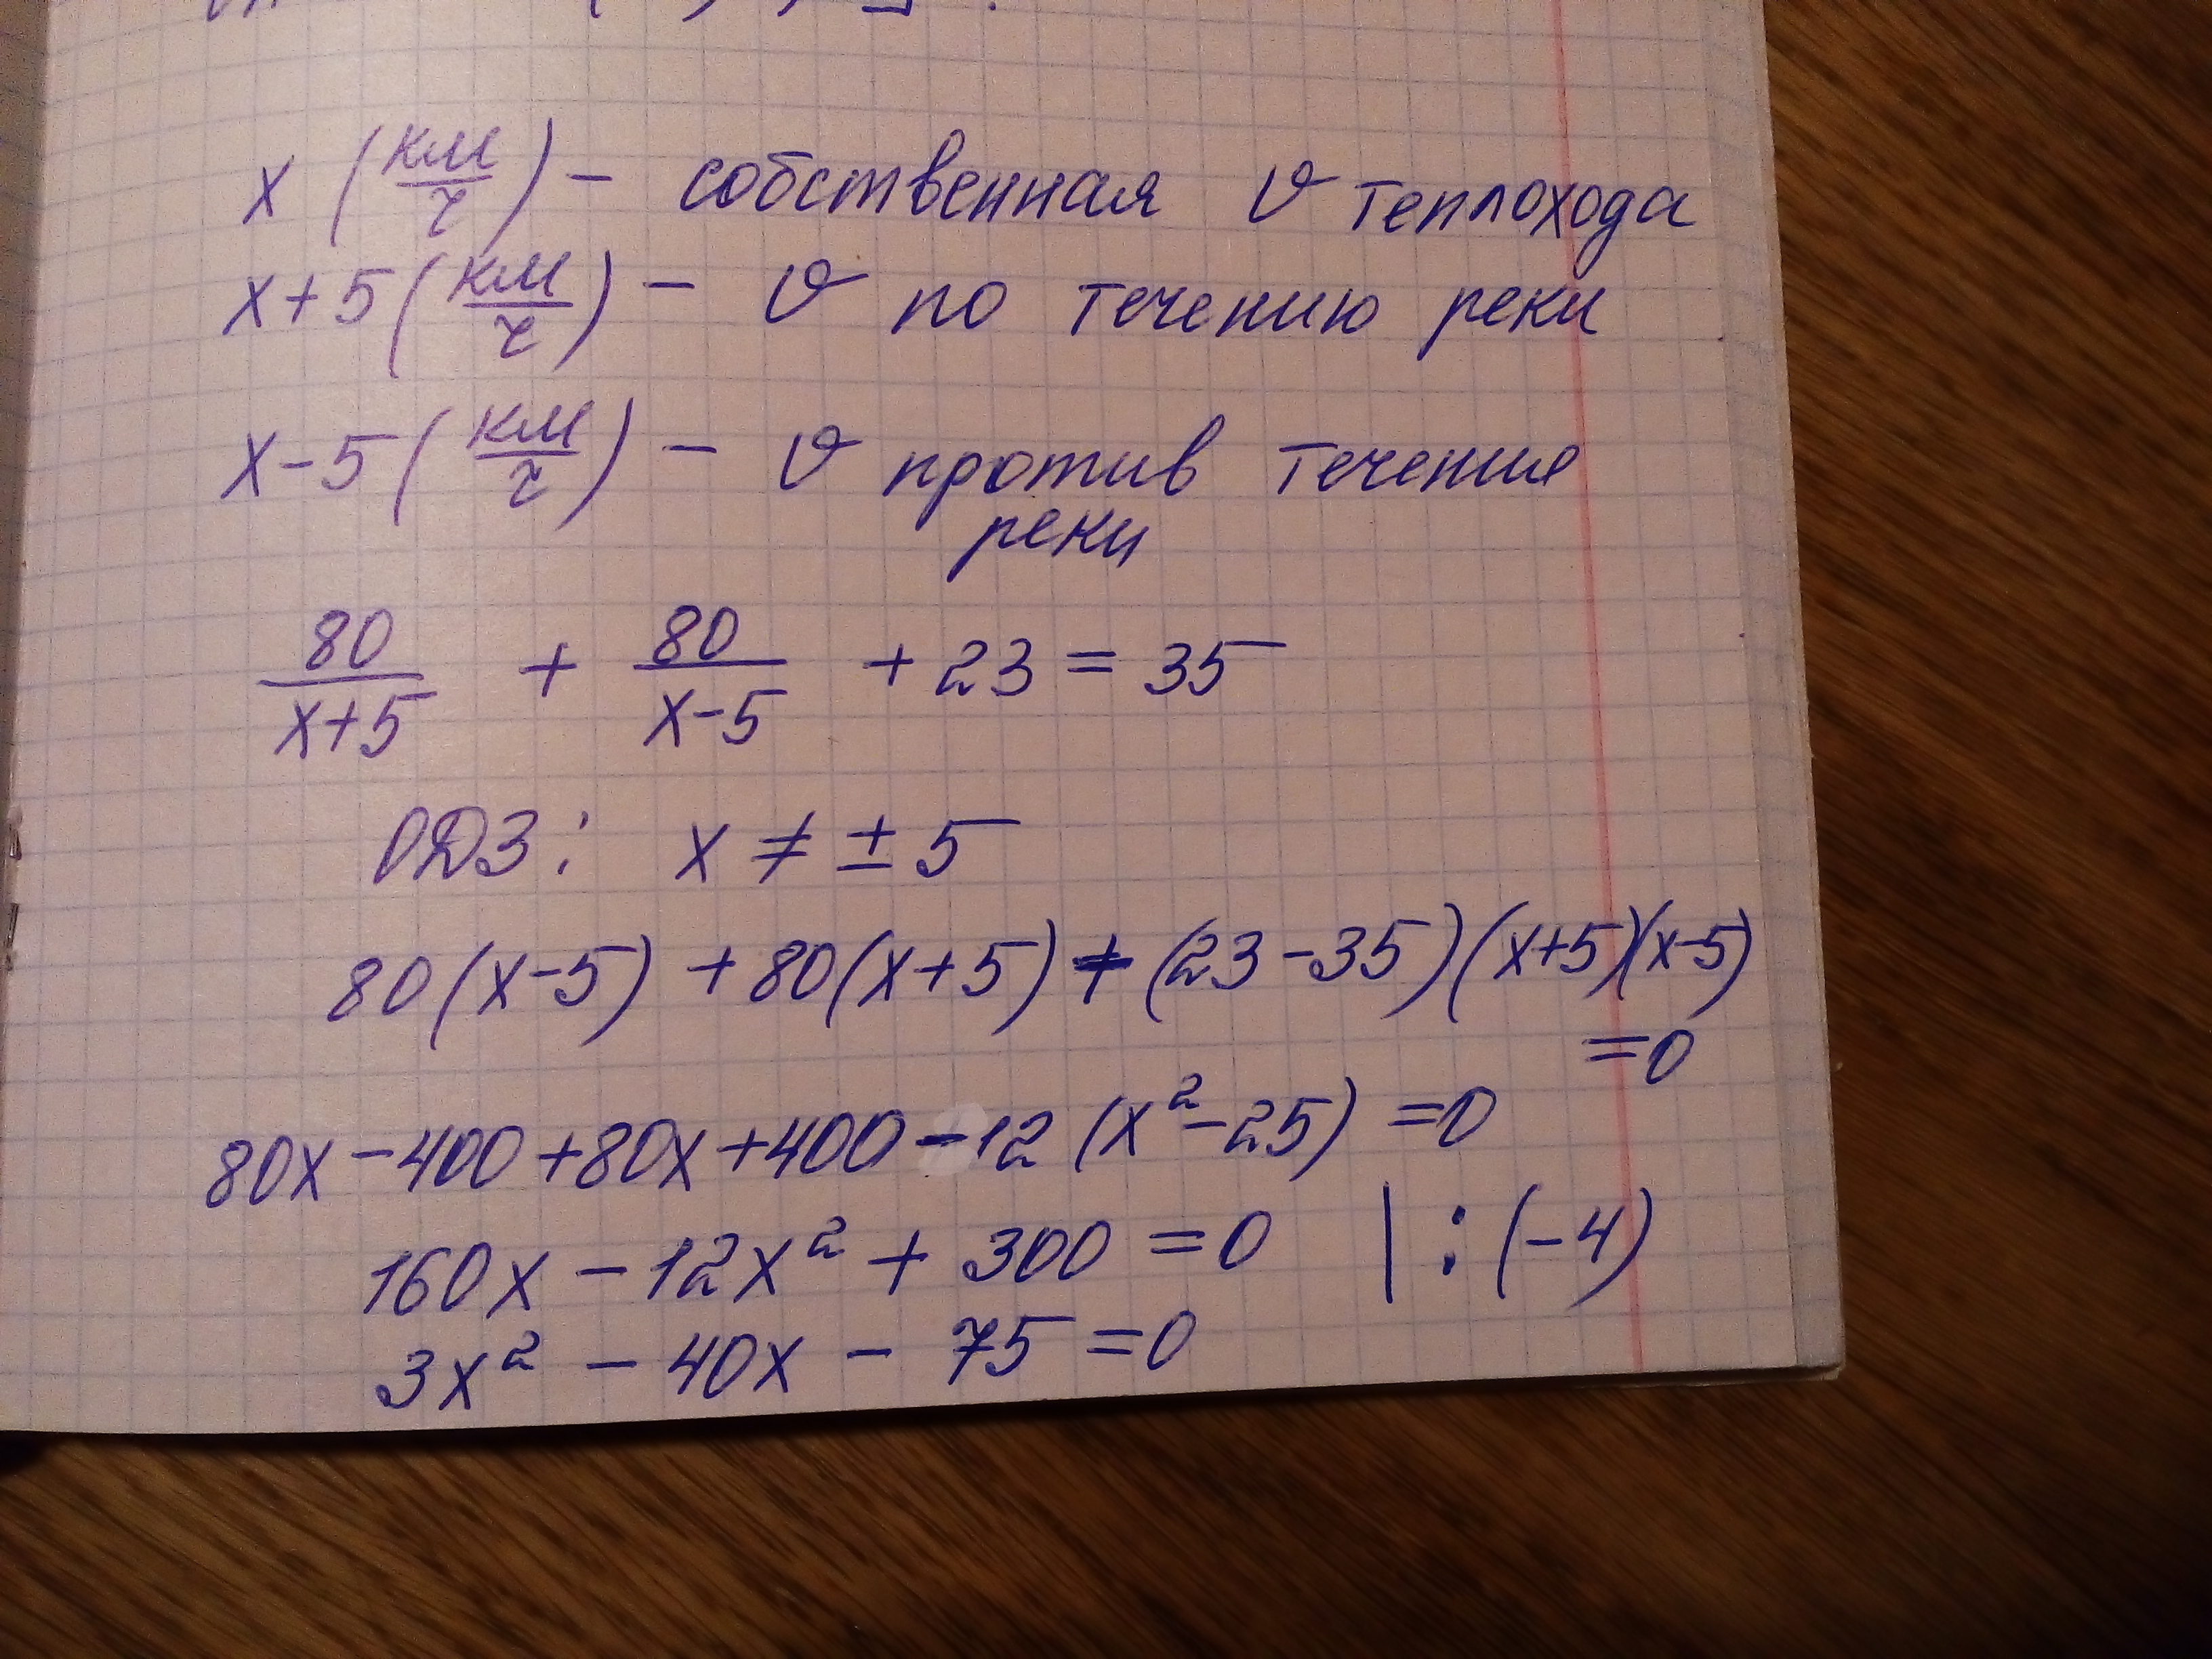 x (км/ч) - собственная v теплохода
x+5 (км/ч) - v по течению реки
x-5 (км/ч) - v против течения
реки
80/(x+5) + 80/(x-5) + 23 = 35
ОДЗ: x ≠ ± 5
80(x-5) + 80(x+5) + (23-35)(x+5)(x-5)
=0
80x - 400 + 80x + 400 - 12 (x² - 25) = 0
160x - 12x² + 300 = 0 | : (-4)
3x² - 40x - 75 = 0